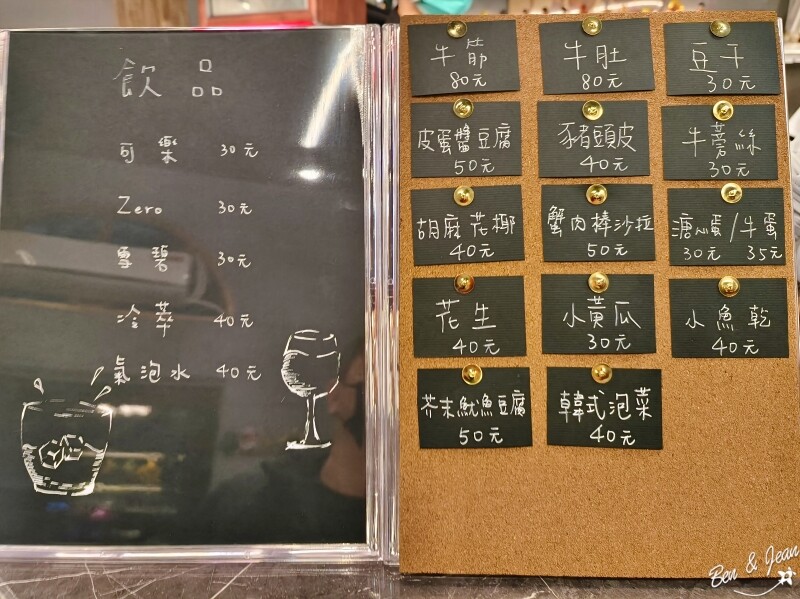 飲品
可樂 30元
Zero 30元
雪碧 30元
冷萃 40元
氣泡水 40元
牛筋
80元
牛肚
80元
豆干
30元
皮蛋醬豆腐
50元
豬頭皮
40元
牛蒡絲
30元
胡麻花椰
40元
蟹肉棒沙拉
50元
溏心蛋/半蛋
30元 35元
花生
40元
小黃瓜
30元
小魚乾
40元
芥末魷魚豆腐
50元
韓式泡菜
40元
Ben & Jean